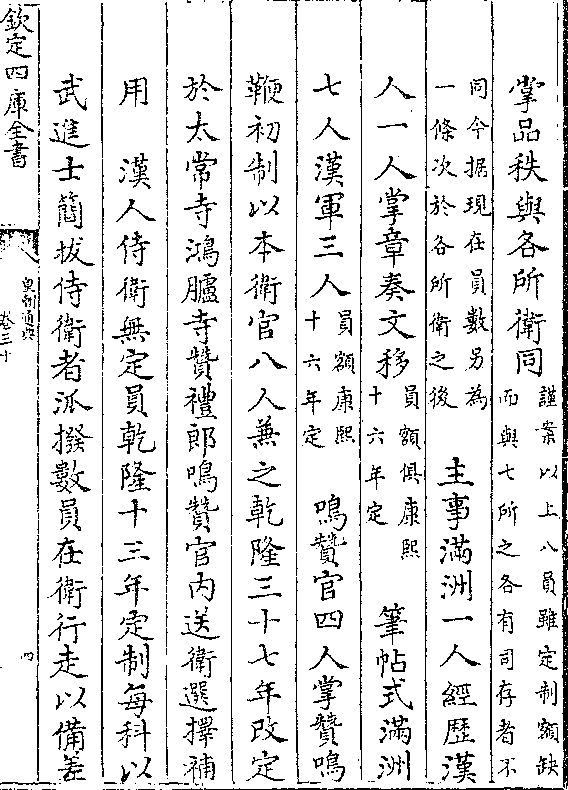 掌品秩與各所衛同謹案以上八員雖定制額缺而與七所之各有司存者不
同今据現在員數另為一條次於各所衛之後　主事滿洲一人經歷漢
人一人掌章奏文移員額俱康熙十六年定　筆帖式滿洲
七人漢軍三人員額康熙十六年定　鳴贊官四人掌贊鳴
鞭初制以本衛官八人兼之乾隆三十七年改定
於太常寺鴻臚寺贊禮郎鳴贊官内送衛選擇補
用　漢人侍衛無定員乾隆十三年定制每科以
武進士簡拔侍衛者派撥數員在衛行走以備差
欽定四庫全書
皇朝通典
卷三十
四